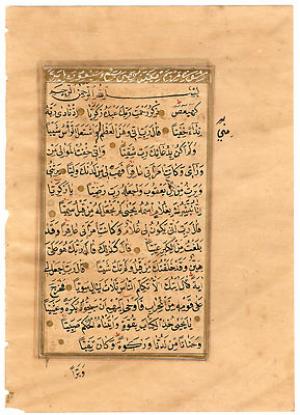 بسم الله الرحمن الرحيم
كهيعص ذكر رحمت ربك عبده زكريا إذ نادى ربه
نداء خفيا قال رب إني وهن العظم مني واشتعل الرأس شيبا
ولم أكن بدعائك رب شقيا وإني خفت الموالي من
وراءي وكانت امرأتي عاقرا فهب لي من لدنك وليا يرثني
ويرث من آل يعقوب واجعله رب رضيا يا زكريا
إنا نبشرك بغلام اسمه يحيى لم نجعل له من قبل سميا
قال رب أنى يكون لي غلام وكانت امرأتي عاقرا وقد
بلغت من الكبر عتيا قال كذلك قال ربك هو علي
هين وقد خلقتك من قبل ولم تك شيئا قال رب اجعل لي
آية قال آيتك ألا تكلم الناس ثلاث ليال سويا فخرج
على قومه من المحراب فأوحى إليهم أن سبحوا بكرة وعشيا
يا يحيى خذ الكتاب بقوة وآتيناه الحكم صبيا
وحنانا من لدنا وزكوة وكان تقيا
وبرا